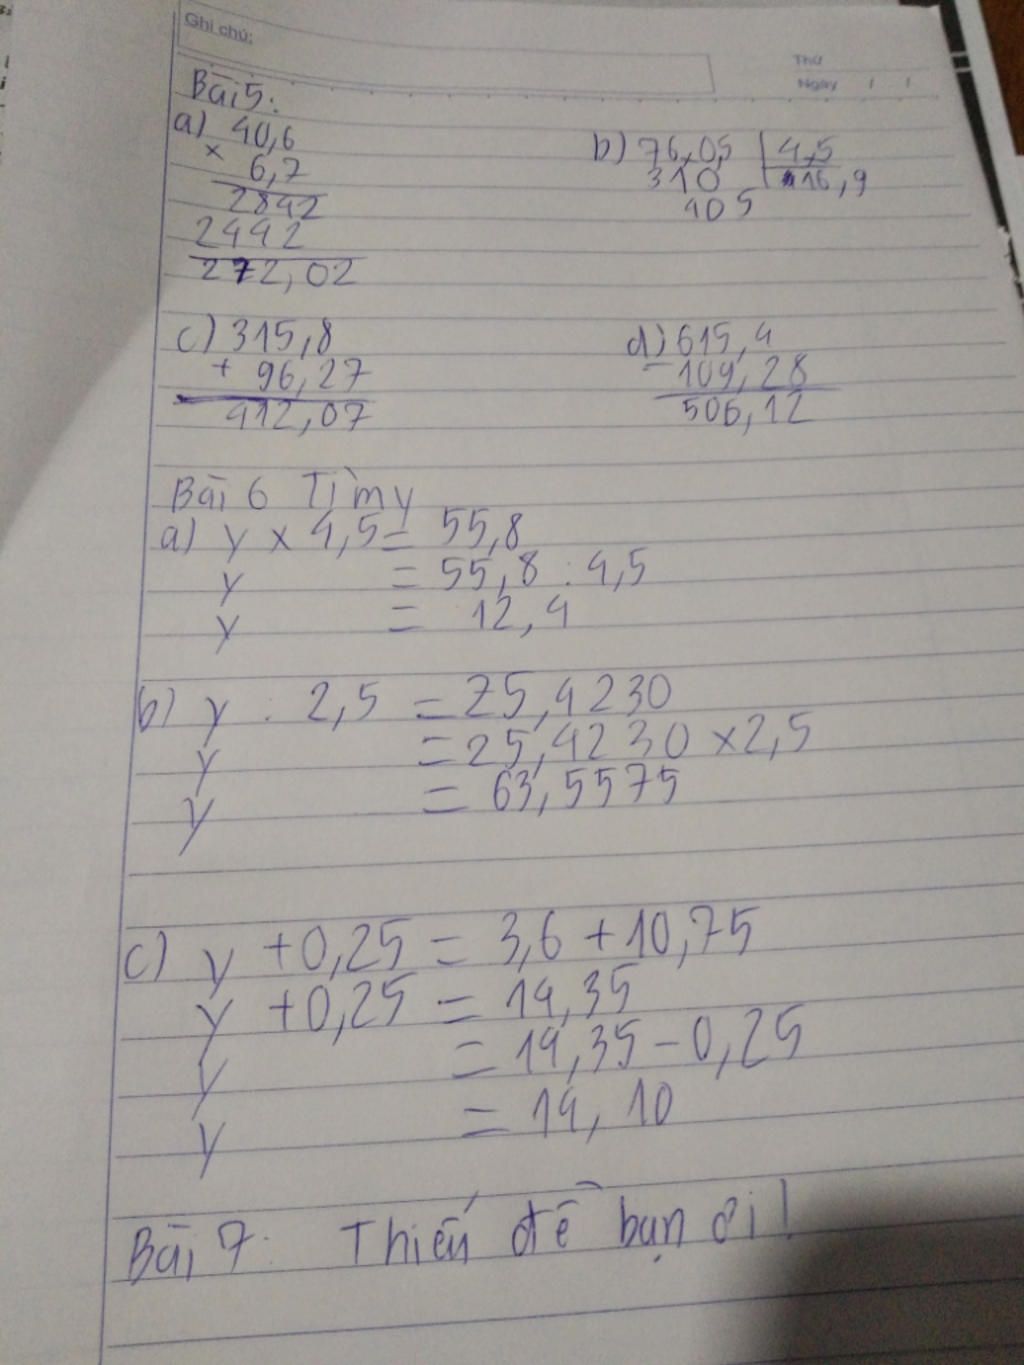 Ghi chú:
Thứ
Ngày / /
Bài 5:
a) 40,6
× 6,7
2842
2442
272,02
b) 76,05 4,5
310 16,9
405
c) 315,8
+ 96,27
412,07
d) 615,4
- 109,28
506,12
Bài 6 Tìm y
a) y × 4,5 = 55,8
y = 55,8 : 4,5
y = 12,4
b) y : 2,5 = 25,4230
y = 25,4230 × 2,5
y = 63,5575
c) y + 0,25 = 3,6 + 10,75
y + 0,25 = 14,35
y = 14,35 - 0,25
y = 14,10
Bài 7: Thiếu đề bạn ơi!